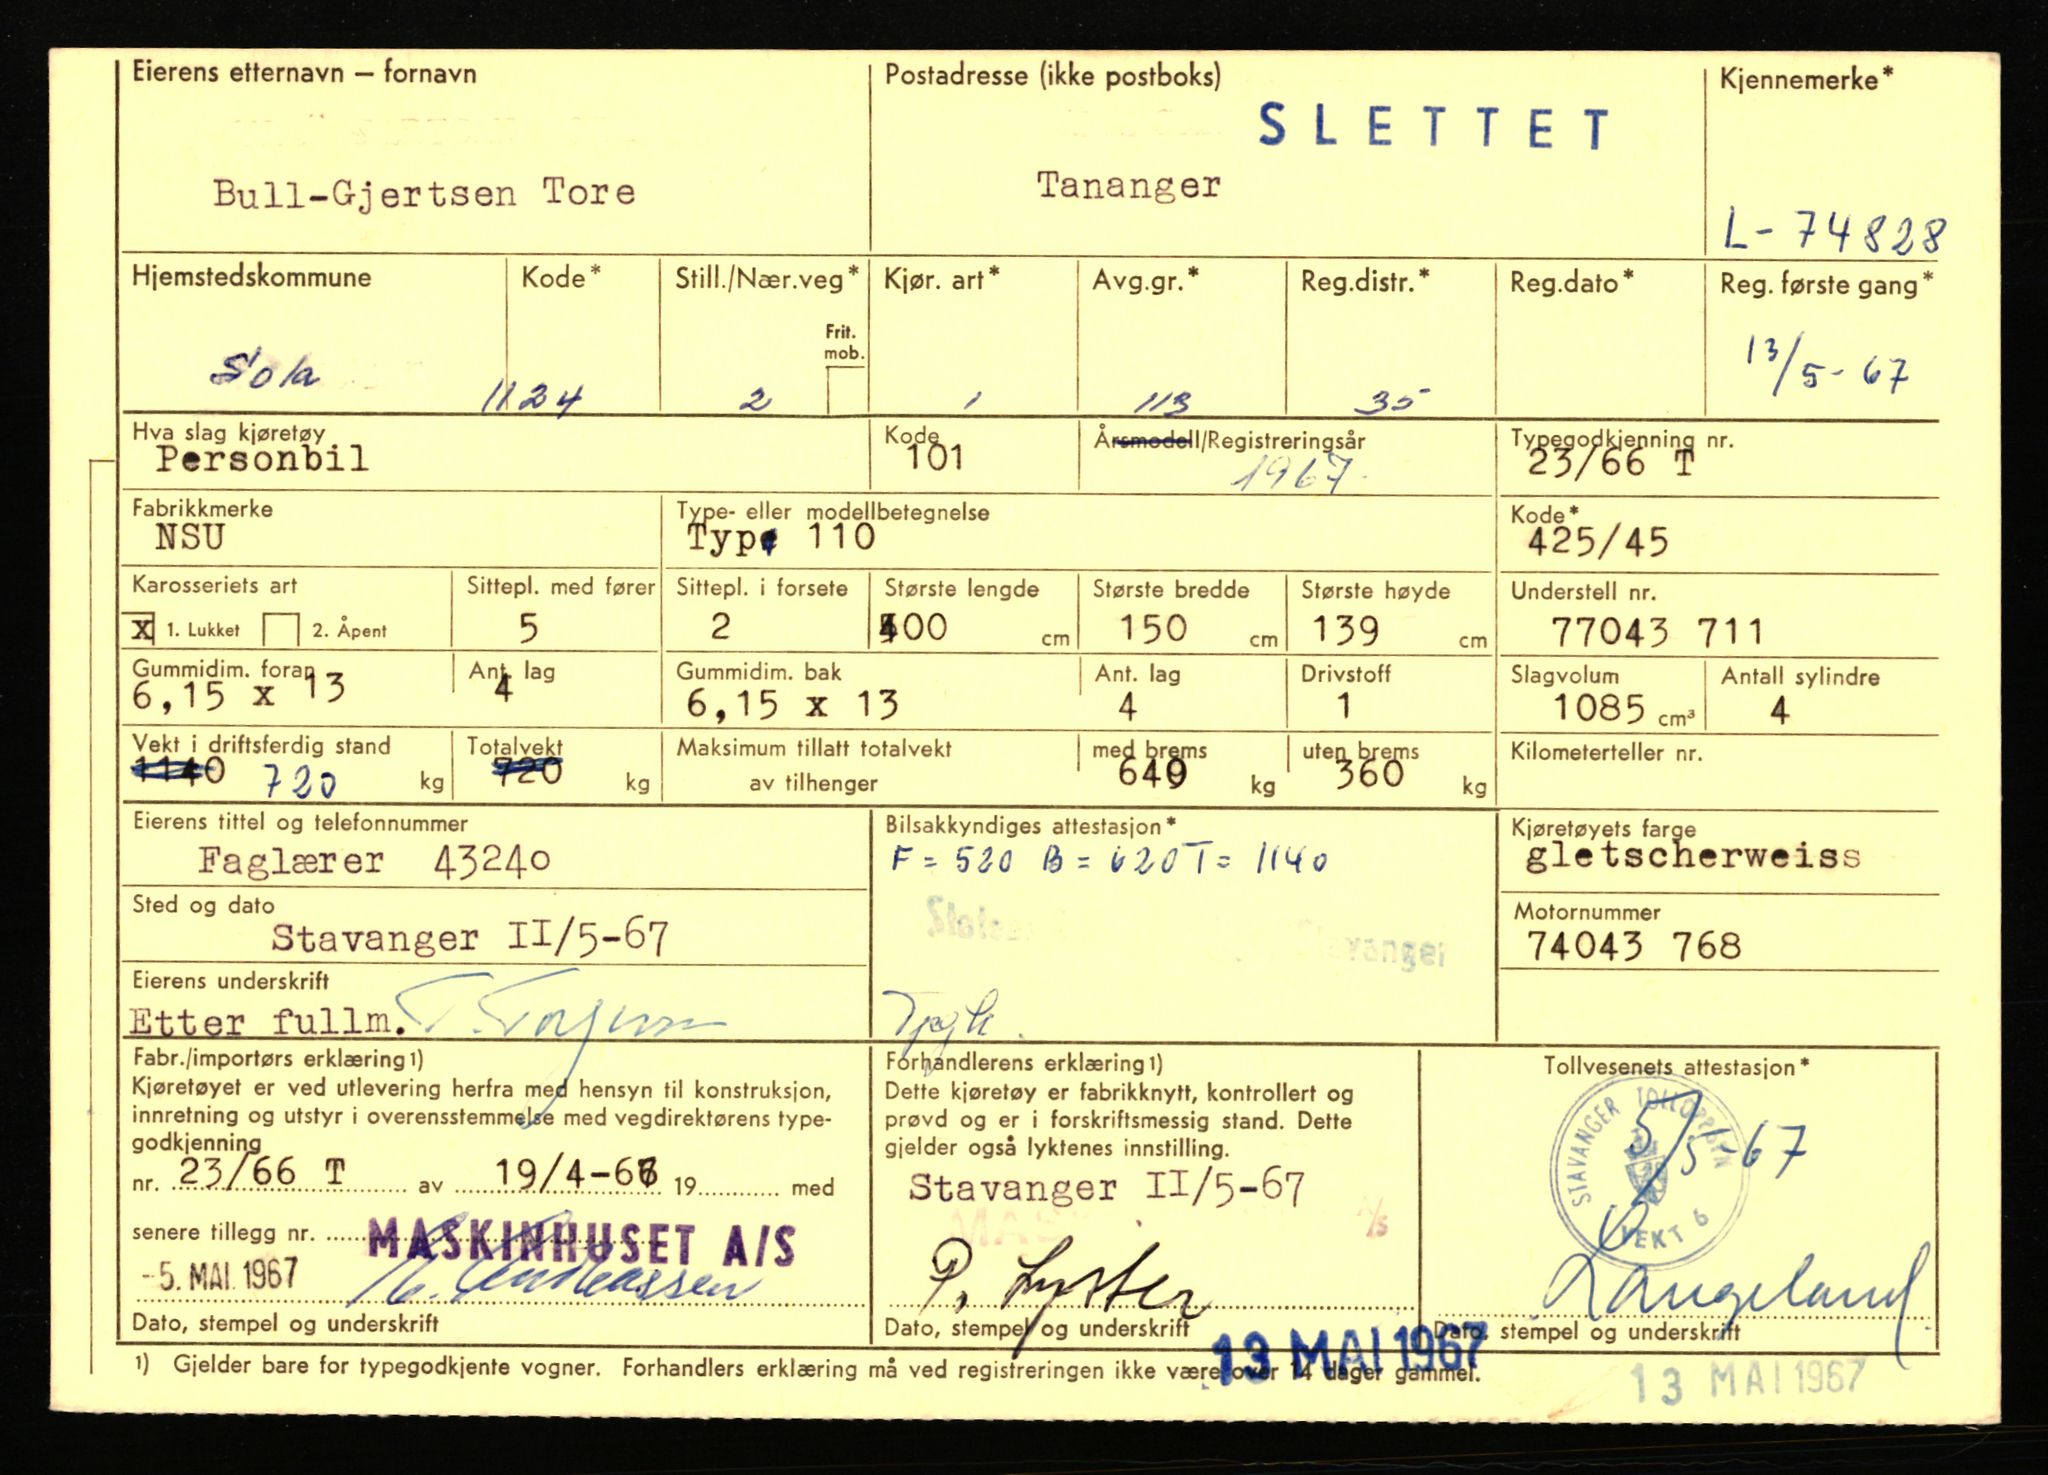 Eierens etternavn – fornavn
Bull-Gjertsen Tore
Postadresse (ikke postboks)
SLETTET
Tananger
Kjennemerke*
L-74828
Hjemstedskommune
Sola
Kode*
1124
Still./Nær.veg*
2
Frit.
mob.
Kjør. art*
1
Avg.gr.*
113
Reg.distr.*
35
Reg.dato*
Reg. første gang*
13/5-67
Hva slag kjøretøy
Personbil
Kode
101
Årsmodell/Registreringsår
1967.
Typegodkjenning nr.
23/66 T
Fabrikkmerke
NSU
Type- eller modellbetegnelse
Type 110
Kode*
425/45
Karosseriets art
X 1. Lukket 2. Åpent
Sittepl. med fører
5
Sittepl. i forsete
2
Største lengde
400 cm
Største bredde
150 cm
Største høyde
139 cm
Understell nr.
77043 711
Gummidim. foran
6,15 x 13
Ant. lag
4
Gummidim. bak
6,15 x 13
Ant. lag
4
Drivstoff
1
Slagvolum
1085 cm³
Antall sylindre
4
Vekt i driftsferdig stand
1140 720 kg
Totalvekt
720 kg
Maksimum tillatt totalvekt
av tilhenger
med brems
640 kg
uten brems
360 kg
Kilometerteller nr.
Eierens tittel og telefonnummer
Faglærer 43240
Bilsakkyndiges attestasjon*
F = 520 B = 620 T = 1140
Stavanger
Kjøretøyets farge
gletscherweiss
Sted og dato
Stavanger II/5-67
Motornummer
74043 768
Eierens underskrift
Etter fullm.
Fabr./importørs erklæring 1)
Kjøretøyet er ved utlevering herfra med hensyn til konstruksjon,
innretning og utstyr i overensstemmelse med vegdirektørens type-
godkjenning
nr. 23/66 T av 19/4-66 19 med
senere tillegg nr.
MASKINHUSET A/S
-5. MAI 1967
Dato, stempel og underskrift
Forhandlerens erklæring 1)
Dette kjøretøy er fabrikknytt, kontrollert og
prøvd og er i forskriftsmessig stand. Dette
gjelder også lyktenes innstilling.
Stavanger II/5-67
P. Lyster
Dato, stempel og underskrift
13 MAI 1967
Tollvesenets attestasjon*
STAVANGER TOLLOPPSYN
VEKT 6
5/5-67
Langeland
Dato, stempel og underskrift
1) Gjelder bare for typegodkjente vogner. Forhandlers erklæring må ved registreringen ikke være over 14 dager gammel.
13 MAI 1967